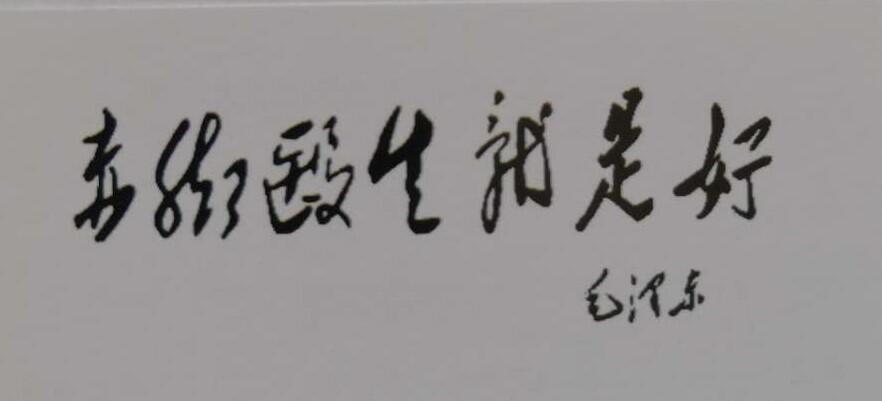 赤脚医生就是好
毛泽东